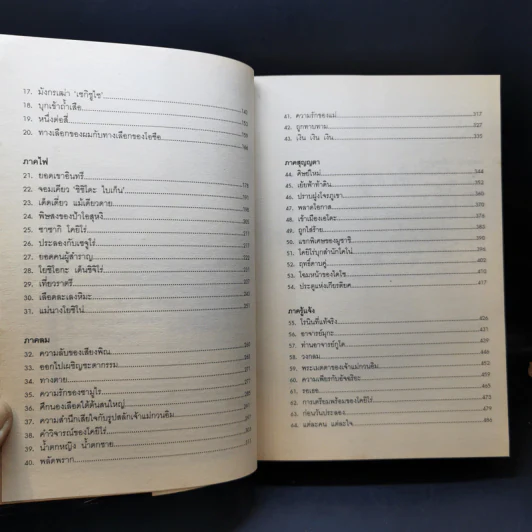 17. มังกรเฒ่า 'เซกิชูไซ'
18. บุกเข้าถ้ำเสือ
19. หนึ่งต่อสี่
20. ทางเลือกของผมกับทางเลือกของโอซือ
ภาคไฟ
21. ยอดเขาอินทรี
22. จอมเคียว 'ชิชิโดะ ไบเก็น'
23. เด็ดเดี่ยว แม้เดียวดาย
24. พิษสงของป้าโอสุงิ
25. ซาซากิ โคยิโร่
26. ประลองกับเซจูโร่
27. ยอดคนผู้สำราญ
28. โยชิโอกะ เด็นชิจิโร่
29. เที่ยวราตรี
30. เลือดละเลงหิมะ
31. แม่นางโยชิโน่
ภาคลม
32. ความลับของเสียงพิณ
33. ออกไปเผชิญชะตากรรม
34. ทางตาย
35. ความรักของซามูไร
36. ศึกนองเลือดใต้ต้นสนใหญ่
37. ความสำนึกเสียใจกับรูปสลักเจ้าแม่กวนอิม
38. คำวิจารณ์ของโคยิโร่
39. น้ำตกหญิง น้ำตกชาย
40. พลัดพราก
41. ความรักของแม่ 317
42. ถูกทาบทาม 327
43. เงิน เงิน เงิน 335
ภาคสุญญตา
44. ศิษย์ใหม่ 344
45. เย้ยฟ้าท้าดิน 350
46. ปราบฝูงโจรภูเขา 361
47. พลาดโอกาส
48. เข้าเมืองเอโดะ
49. ถูกใส่ร้าย
50. แขกพิเศษของมูซาชิ 390
51. โคยิโร่บุกสำนักโตโน่ 395
52. ฤทธิ์ดาบคู่ 400
53. โฉมหน้าของไดโซ 410
54. ประตูแห่งเกียรติยศ 417
ภาครู้แจ้ง
55. โรนินที่แท้จริง 426
56. อาจารย์มุกะ
57. ท่านอาจารย์กูโด
58. วงกลม
59. พระเมตตาของเจ้าแม่กวนอิม
60. ความเพียรกับอัจฉริยะ
61. รอเธอ 465
62. การเตรียมพร้อมของโคยิโร่
63. ก่อนวันประลอง
64. แต่ละคน แต่ละใจ